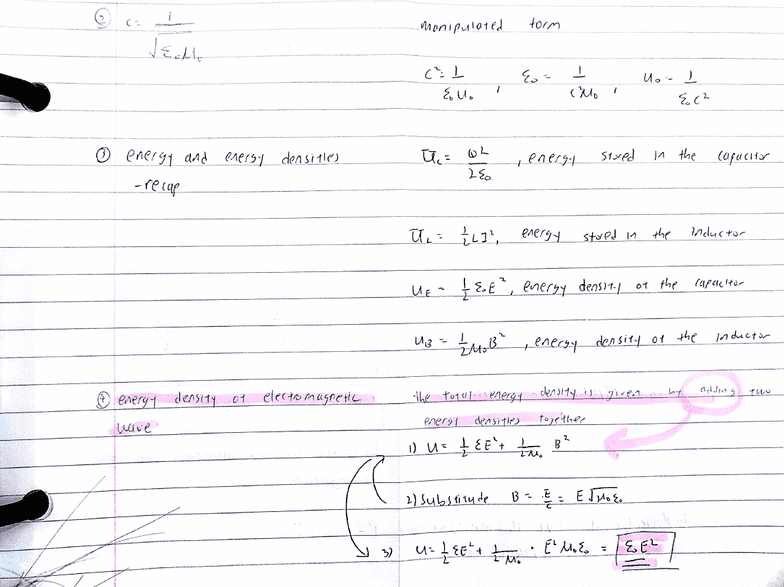 ② c = 1/√ε₀μ₀
manipulated form
c² = 1/ε₀μ₀ , ε₀ = 1/c²μ₀ , μ₀ = 1/ε₀c²
③ energy and energy densities
-recap
U_c = Q²/2ε₀ , energy stored in the capacitor
U_L = ½LI², energy stored in the inductor
u_E = ½ε₀E², energy density of the capacitor
u_B = 1/2μ₀ B² , energy density of the inductor
④ energy density of electromagnetic
wave
the total energy density is given by adding two
energy densities together
1) u = ½ εE² + 1/2μ₀ B²
2) substitude B = E/c = E√μ₀ε₀
3) u = ½ εE² + 1/2μ₀ · E²μ₀ε₀ = ε₀E²